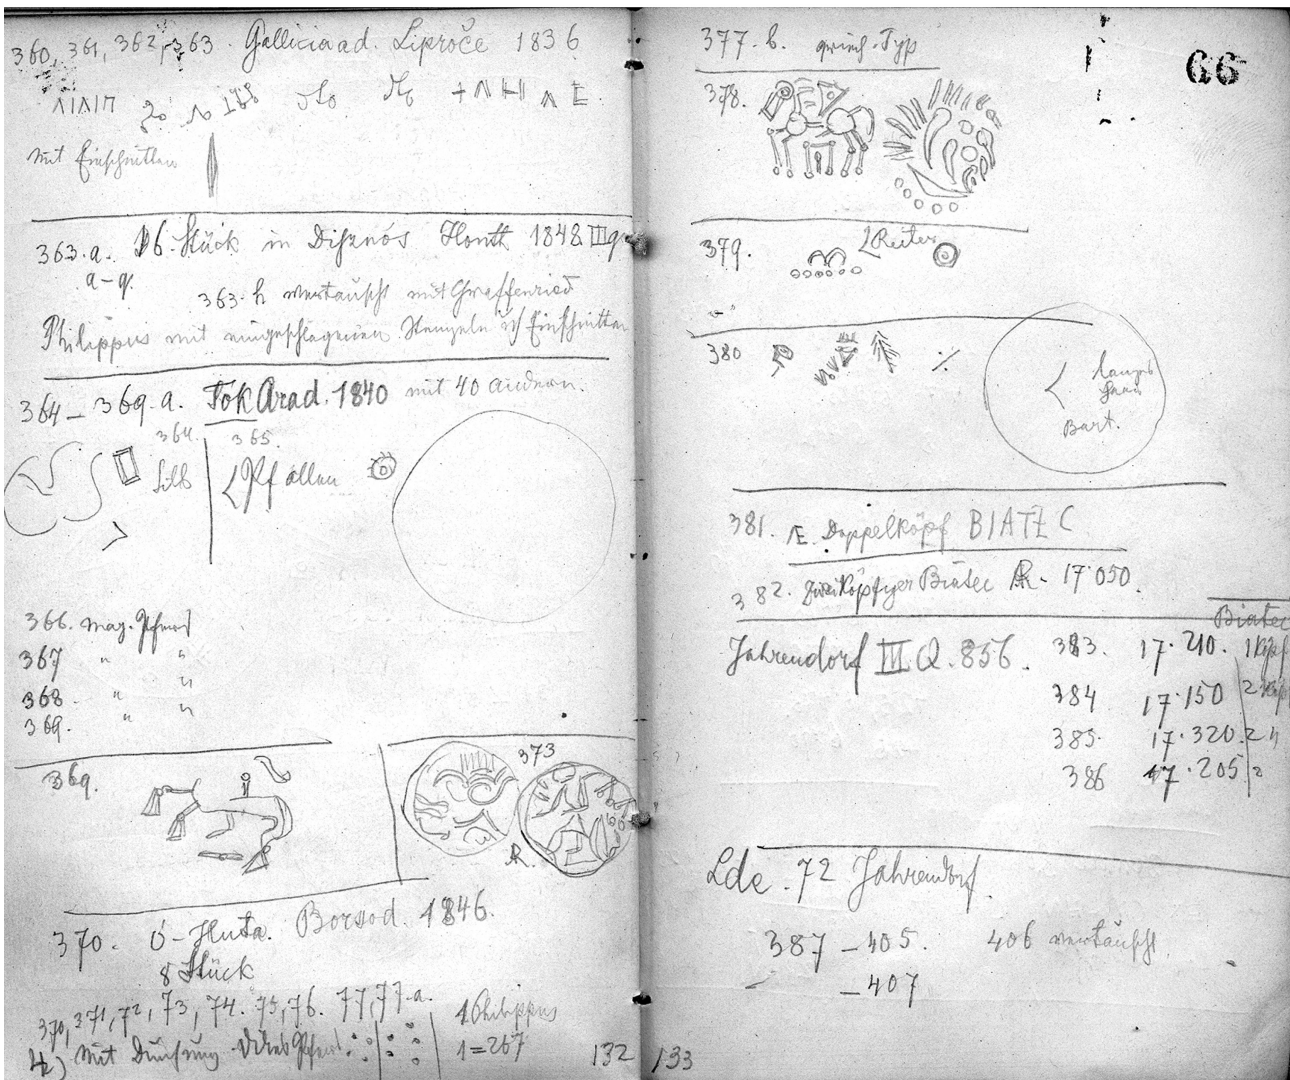 360, 361, 362, 363. Gallicia ad. Liproče 1836
mit Einschnitten
363.a. 16 Stück in Disznós Honth 1848 III
a–q.
363.h vertauscht mit Graffenried
Philippus mit eingeschlagenen Stempeln Einschnitten
364– 369.a. Tok Arad. 1840 mit 40 andern.
364. 365.
Pf allen
366. mag. Pferd
367 " "
368 " "
369. " "
369.
373
AR.
370. Ó-Huta. Borsod. 1846.
8 Stück
370, 371, 72, 73, 74. 75, 76. 77, 77.a. 1 Philippus
mit 1=267
132
377.b. griech. Typ
66
378.
379. Reiter
380
Bart.
381. Doppelköpf BIATEC
382. zweiköpfiger Biatec AR. 17·050.
Biatec
Jahrendorf III.Q.856. 383. 17·210. 1 Kopf
384 17·150 2
385. 17·320. 2 "
386 17·205 2
Lde. 72 Jahrendorf.
387 – 405. 406 vertauscht.
– 407
133